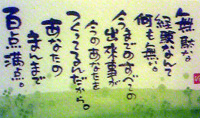 無駄な
経験なんて
何も無い。
今までのすべての
出来事が
今のあなたを
つくってるんだから。
あなたの
まんまで
百点満点。